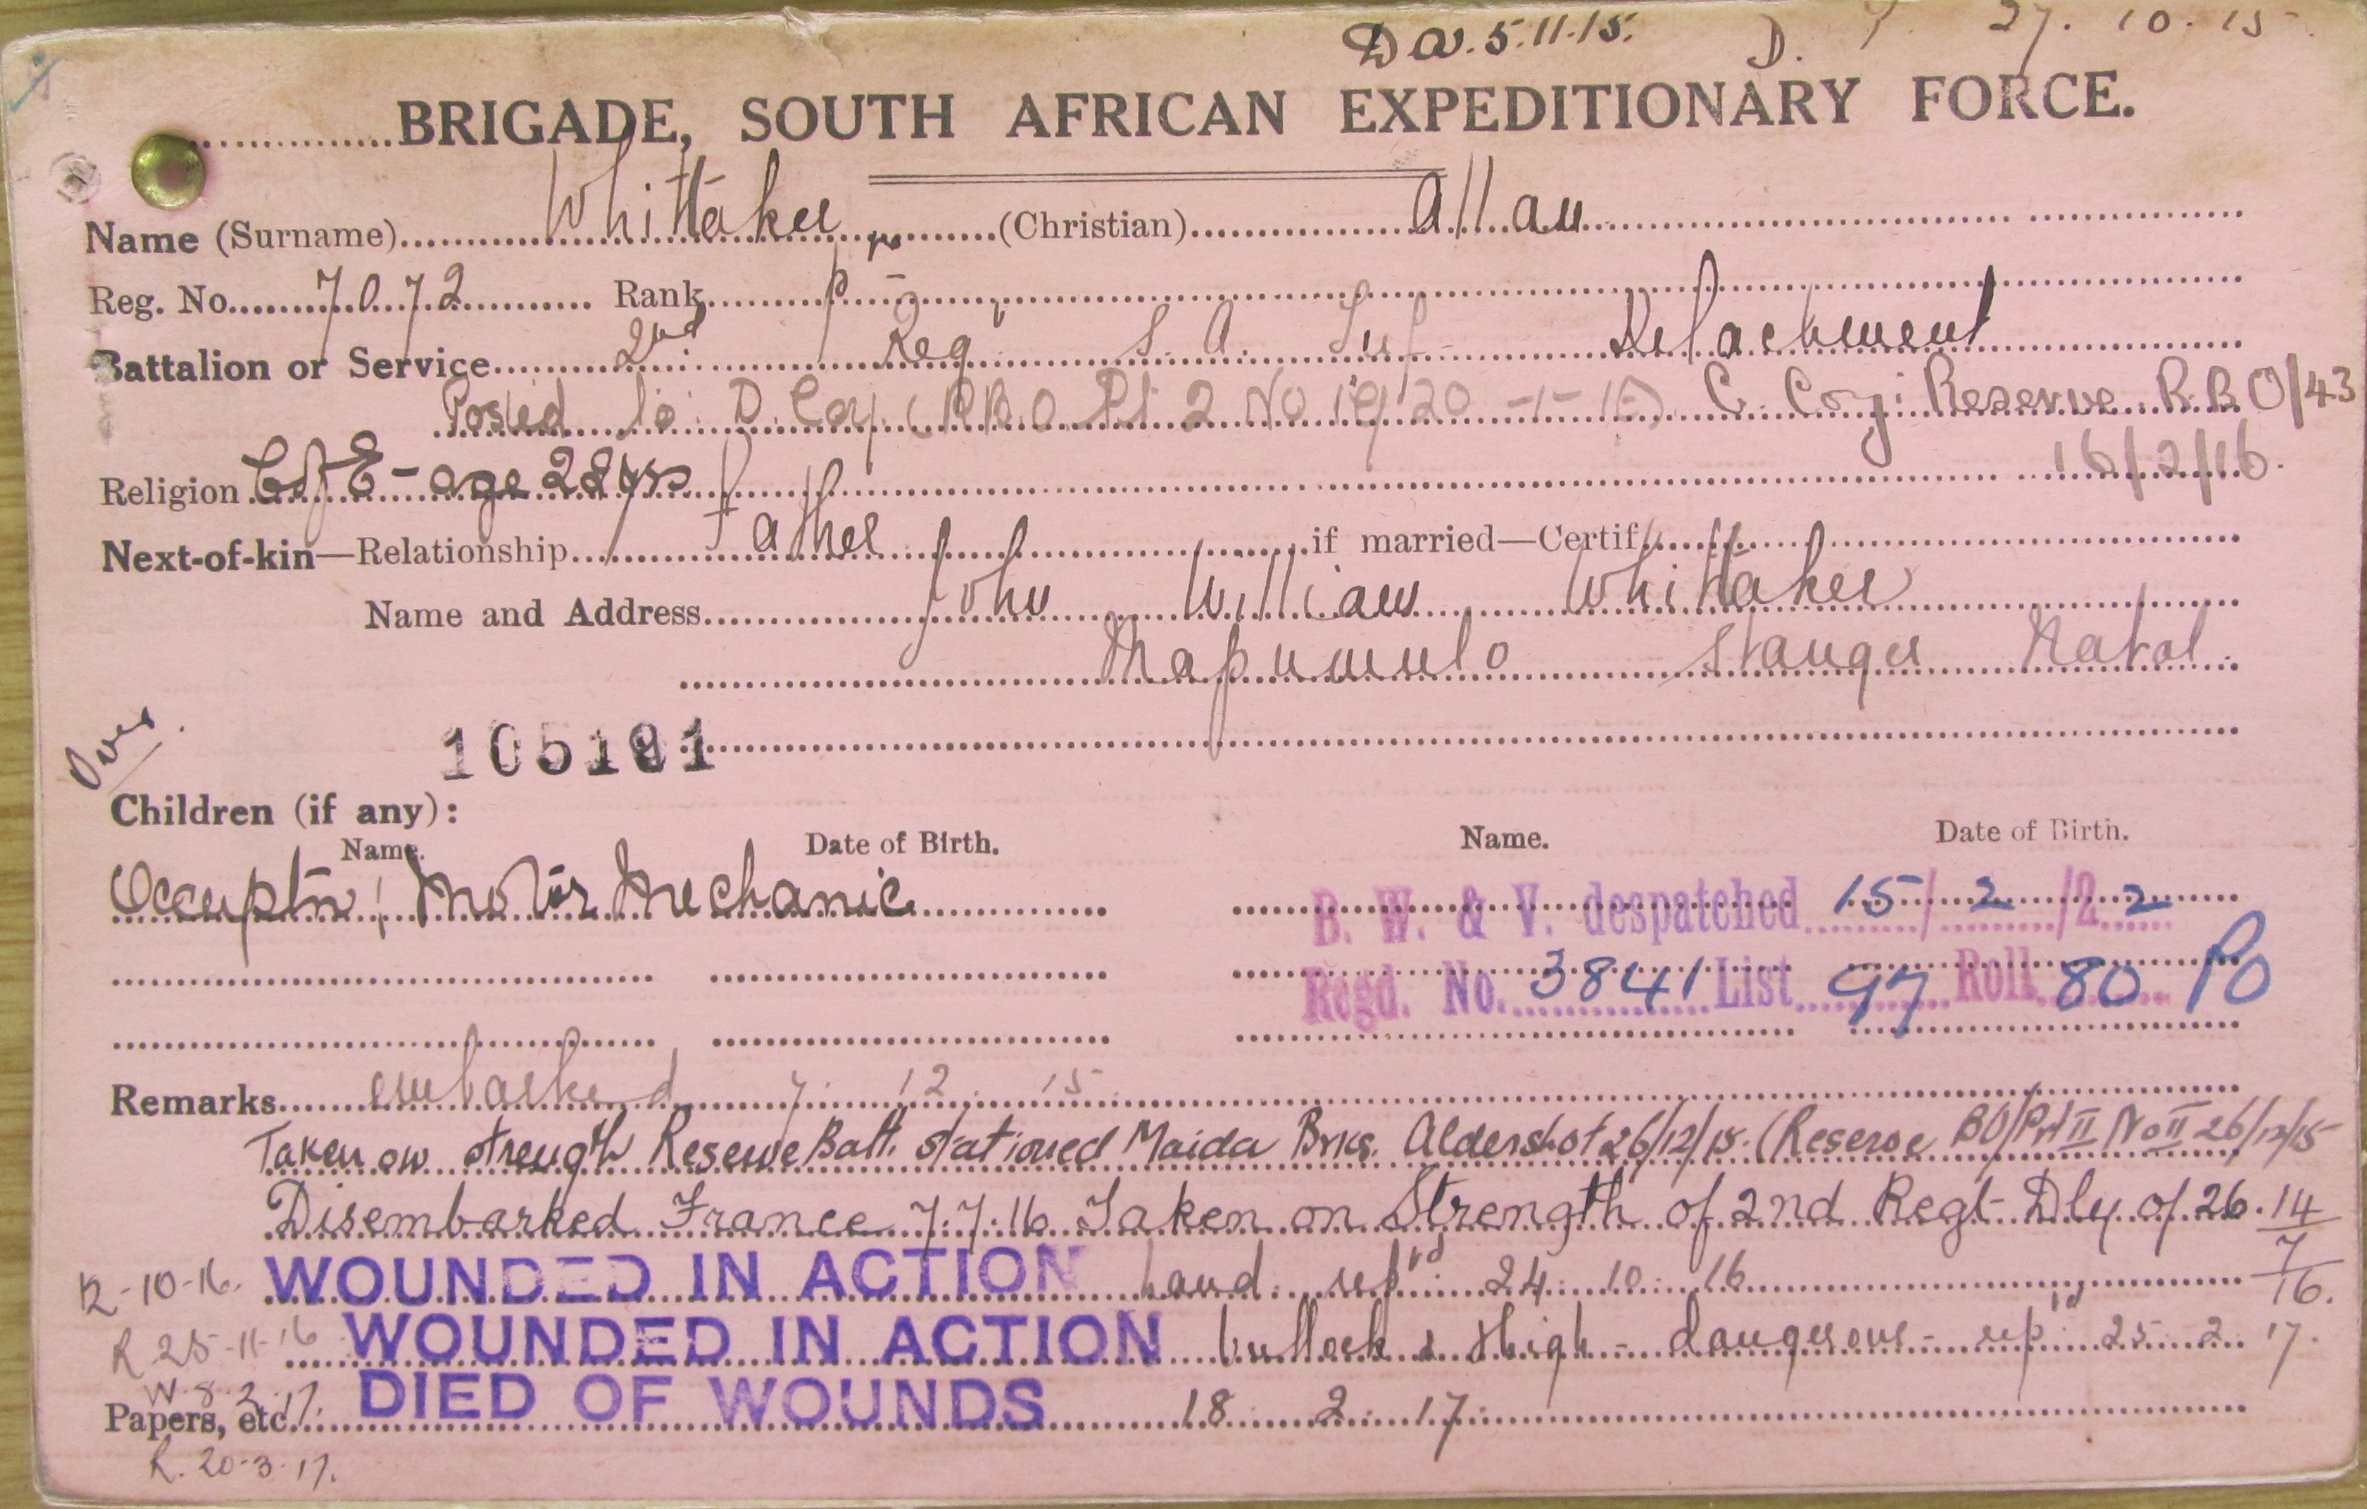 Da. 5.11.15. D. P. 27.10.15
BRIGADE, SOUTH AFRICAN EXPEDITIONARY FORCE.
Name (Surname) Whittaker (Christian) Allan
Reg. No. 7072 Rank
Battalion or Service 2nd Reg S. A. Inf Detachment
Posted to D. Coy. C. Coy. Reserve R.B.O/43
16/2/16.
Religion C of E - age 22 yrs
Next-of-kin—Relationship Father if married—Certif.
Name and Address John William Whittaker
Mapumulo Stanger Natal
Over.
105181
Children (if any):
Name. Date of Birth. Name. Date of Birth.
Occuptn; Motor Mechanic
B. W. & V. despatched 15/2/22
Regd. No. 3841 List 97 Roll 80 Po
Remarks embarked 7 12 15
Taken on strength Reserve Batt. stationed Maida Brks. Aldershot 26/12/15. (Reserve BO/Prt II No II 26/12/15
Disembarked France 7.7.16 Taken on Strength of 2nd Regt Dly of 26. 14/7/16.
12-10-16. WOUNDED IN ACTION hand rep'd 24 10 16
R 25-11-16 WOUNDED IN ACTION buttock & thigh - dangerous - rep'd 25 2 17.
W. 8. 2. 17.
Papers, etc. DIED OF WOUNDS 18 2 17
R. 20-3-17.